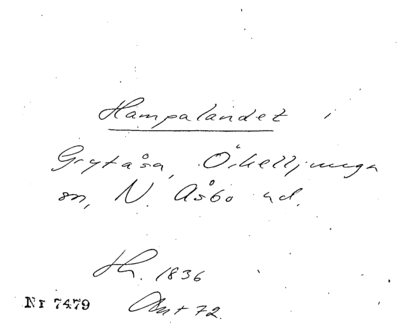 Hampalandet i
Grytåsa, Örkelljunga
sn, N. Åsbo hd.
Th. 1836
Nr 7479 Ant 72.